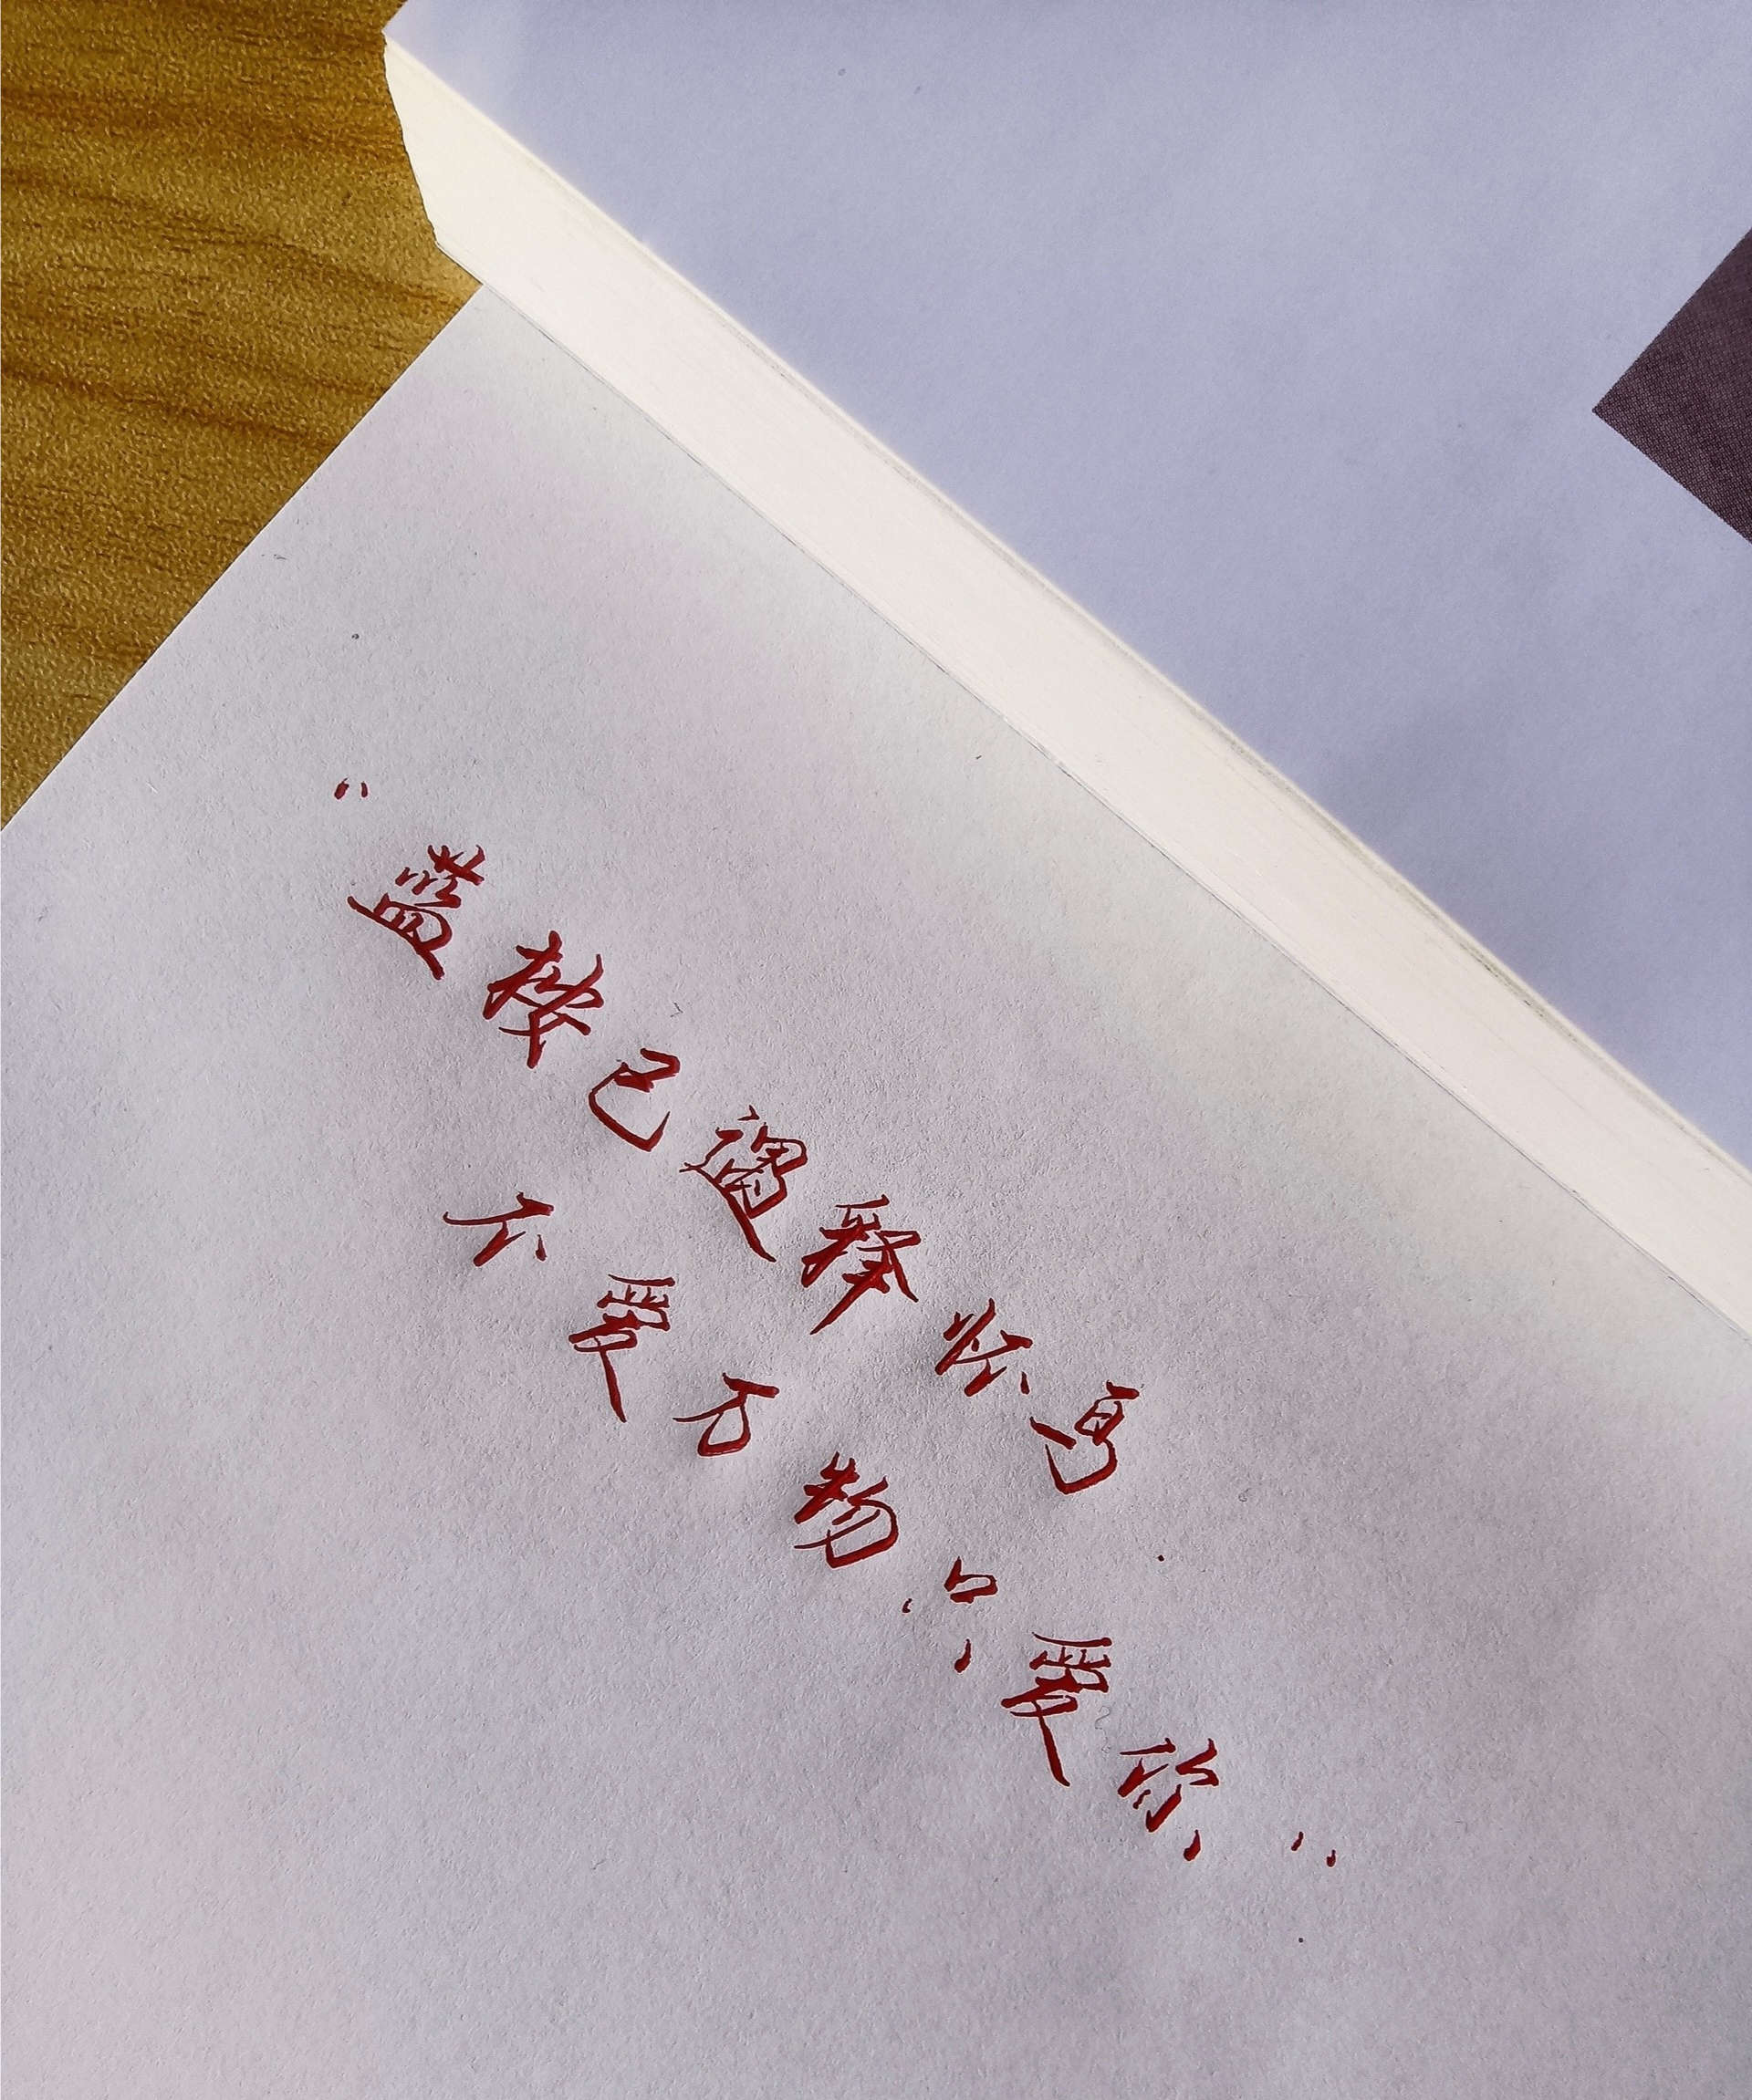 “蓝桉已遇释怀鸟
不爱万物只爱你”